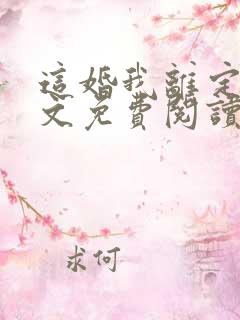 這婚我離定
文免費閱讀
求何